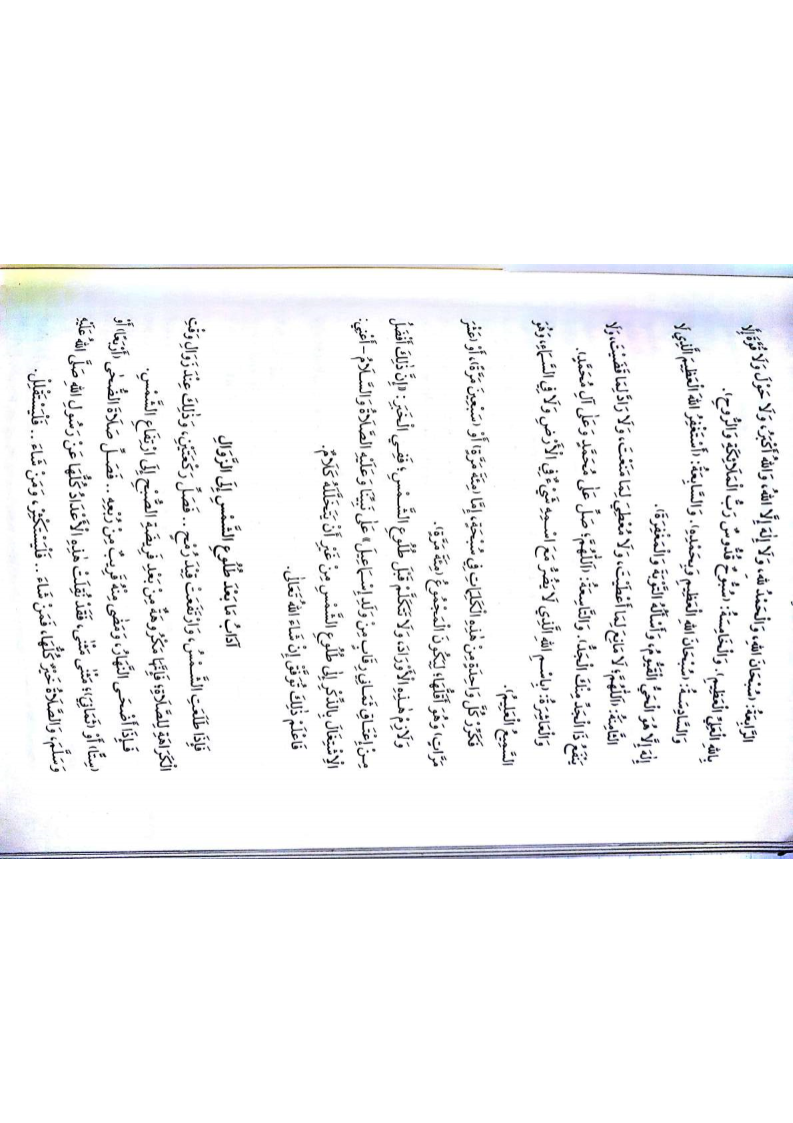 الرَّابِعَةُ: (سُبْحَانَ اللهِ، وَالْحَمْدُ للهِ، وَلَا إِلٰهَ إِلَّا اللهُ، وَاللهُ أَكْبَرُ، وَلَا حَوْلَ وَلَا قُوَّةَ إِلَّا
بِاللهِ الْعَلِيِّ الْعَظِيمِ). وَالْخَامِسَةُ: (سُبُّوحٌ قُدُّوسٌ رَبُّ الْمَلَائِكَةِ وَالرُّوحِ).
وَالسَّادِسَةُ: (سُبْحَانَ اللهِ الْعَظِيمِ وَبِحَمْدِهِ). وَالسَّابِعَةُ: (أَسْتَغْفِرُ اللهَ الْعَظِيمَ الَّذِي لَا
إِلٰهَ إِلَّا هُوَ الْحَيُّ الْقَيُّومُ، وَأَسْأَلُهُ التَّوْبَةَ وَالْمَغْفِرَةَ).
الثَّامِنَةُ: (اللّٰهُمَّ؛ لَا مَانِعَ لِمَا أَعْطَيْتَ، وَلَا مُعْطِيَ لِمَا مَنَعْتَ، وَلَا رَادَّ لِمَا قَضَيْتَ، وَلَا
يَنْفَعُ ذَا الْجَدِّ مِنْكَ الْجَدُّ). وَالتَّاسِعَةُ: (اللّٰهُمَّ؛ صَلِّ عَلَىٰ مُحَمَّدٍ وَعَلَىٰ آلِ مُحَمَّدٍ).
وَالْعَاشِرَةُ: (بِاسْمِ اللهِ الَّذِي لَا يَضُرُّ مَعَ اسْمِهِ شَيْءٌ فِي الْأَرْضِ وَلَا فِي السَّمَاءِ، وَهُوَ
السَّمِيعُ الْعَلِيمُ).
فَكَرِّرْ كُلَّ وَاحِدَةٍ مِنْ هٰذِهِ الْكَلِمَاتِ فِي سُبْحَةٍ، إِمَّا (مِئَةَ مَرَّةٍ) أَوْ (سَبْعِينَ مَرَّةً)، أَوْ (عَشْرَ
مَرَّاتٍ)، وَهُوَ أَقَلُّهَا؛ لِيَكُونَ الْمَجْمُوعُ (مِئَةَ مَرَّةٍ).
وَلَازِمْ هٰذِهِ الْأَوْرَادَ، وَلَا تَتَكَلَّمْ قَبْلَ طُلُوعِ الشَّمْسِ؛ فَفِي الْخَبَرِ: «إِنَّ ذٰلِكَ أَفْضَلُ
مِنْ إِعْتَاقِ ثَمَانِي رِقَابٍ مِنْ وَلَدِ إِسْمَاعِيلَ» عَلَىٰ نَبِيِّنَا وَعَلَيْهِ الصَّلَاةُ وَالسَّلَامُ- أَعْنِي:
الِاشْتِغَالَ بِالذِّكْرِ إِلَىٰ طُلُوعِ الشَّمْسِ مِنْ غَيْرِ أَنْ يَتَخَلَّلَهُ كَلَامٌ.
فَاعْلَمْ ذٰلِكَ تُوَفَّقْ إِنْ شَاءَ اللهُ تَعَالَىٰ.
آدَابُ مَا بَعْدَ طُلُوعِ الشَّمْسِ إِلَى الزَّوَالِ
فَإِذَا طَلَعَتِ الشَّمْسُ، وَارْتَفَعَتْ قَيْدَ رُمْحٍ .. فَصَلِّ رَكْعَتَيْنِ، وَذٰلِكَ عِنْدَ زَوَالِ وَقْتِ
الْكَرَاهَةِ لِلصَّلَاةِ؛ فَإِنَّهَا مَكْرُوهَةٌ مِنْ بَعْدِ فَرِيضَةِ الصُّبْحِ إِلَى ارْتِفَاعِ الشَّمْسِ.
فَإِذَا أَضْحَى النَّهَارُ، وَمَضَىٰ مِنْهُ قَرِيبٌ مِنْ رُبْعِهِ .. فَصَلِّ صَلَاةَ الضُّحَىٰ (أَرْبَعًا) أَوْ
(سِتًّا) أَوْ (ثَمَانِيًا)، مَثْنَىٰ مَثْنَىٰ، فَقَدْ نُقِلَتْ هٰذِهِ الْأَعْدَادُ كُلُّهَا عَنْ رَسُولِ اللهِ صَلَّى اللهُ عَلَيْهِ
وَسَلَّمَ، وَالصَّلَاةُ خَيْرٌ كُلُّهَا، فَمَنْ شَاءَ .. فَلْيَسْتَكْثِرْ، وَمَنْ شَاءَ .. فَلْيَسْتَقْلِلْ.